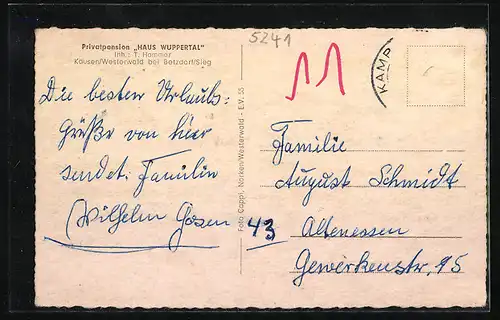 Privatpension „HAUS WUPPERTAL"
Inh.: T. Hammer
Kausen/Westerwald bei Betzdorf/Sieg
5241
11
KAMP
Die besten Urlaubs:
grüße von hier
sendet: Familie
Wilhelm Gosen
Foto Cappi, Norken/Westerwald - E.V. 55
Familie
August Schmidt
43 Altenessen
Gewerkenstr, 95